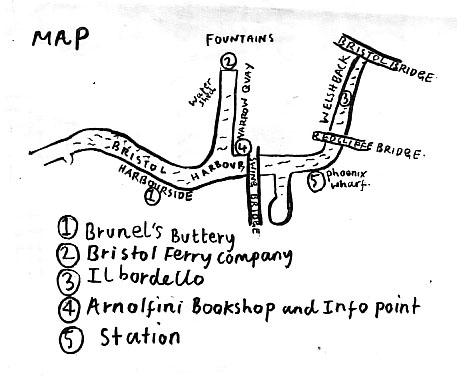 MAP
FOUNTAINS
2
Water shed
NARROW QUAY
BRISTOL BRIDGE
WELSHBACK
3
REDCLIFFE BRIDGE
4
BRISTOL HARBOUR
HARBOURSIDE
1
SWING BRIDGE
5 Phoenix
wharf
1 Brunel's Buttery
2 Bristol Ferry company
3 Il bordello
4 Arnolfini Bookshop and Info point
5 Station